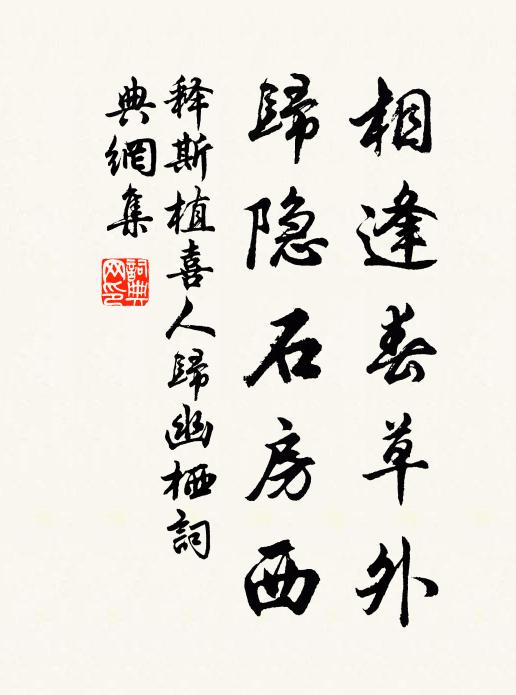 相逢春草外
歸隐石房西
释斯植喜人歸幽栖詞
典網集
詞典网印